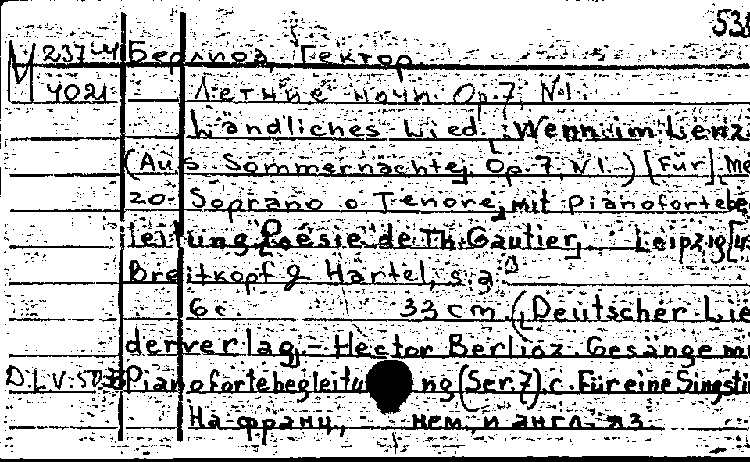 538
М 237-4 Берлиоз, Гектор.
4021 Летние ночи. Op. 7, N 1.
Ländliches Lied. Wenn im Lenz
(Aus Sommernächte, Op. 7, N 1.) [Für] Mez
zo-Soprano o Tenore, mit Pianofortebe
leitung Poésie de Th. Gautier. Leipzig [u.
Breitkopf & Härtel, s. a.
6 с. 33 cm. (Deutscher Lie
derverlag, - Hector Berlioz. Gesänge mi
D.L.V: Pianofortebegleitung (Ser. 7). c. Für eine Singsti
На франц, нем. и англ. яз.